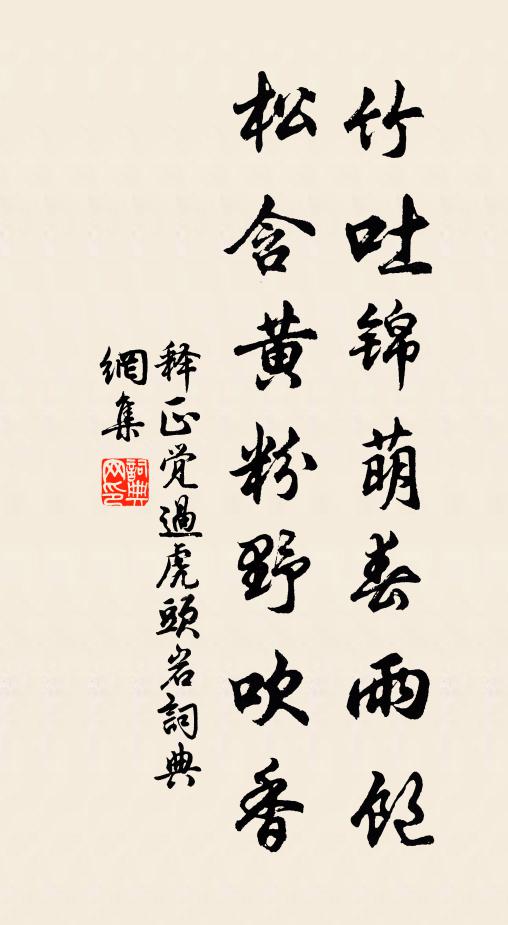 竹吐锦萌春雨飽
松含黄粉野吹香
释正觉過虎頭岩詞典
網集
詞典网印